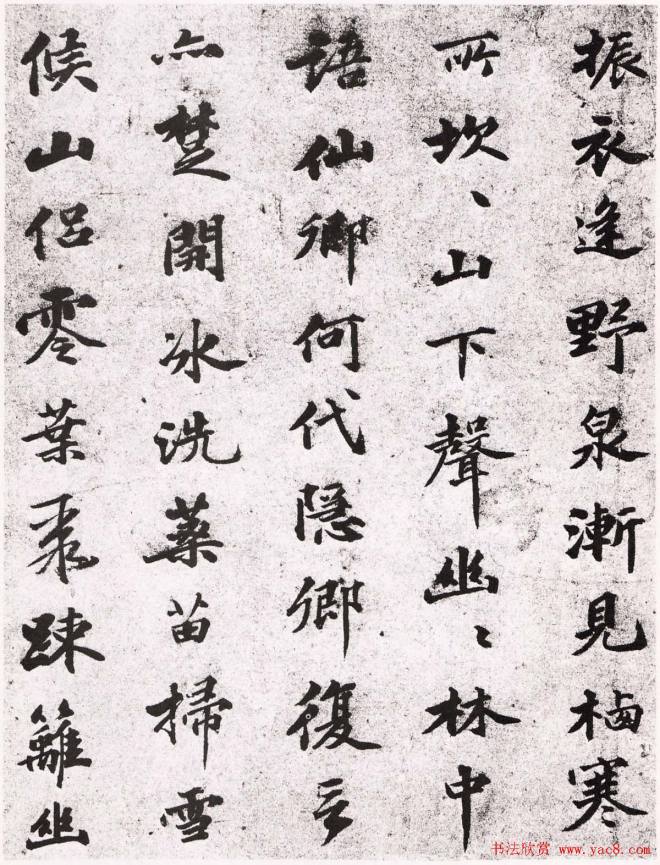 振衣逢野泉漸見栖寒
所坎、山下聲幽、林中
語仙鄉何代隱鄉復言
亦楚開冰洗藥苗掃雪
候山侶零葉聚踈籬幽
书法欣赏 www.yac8.com